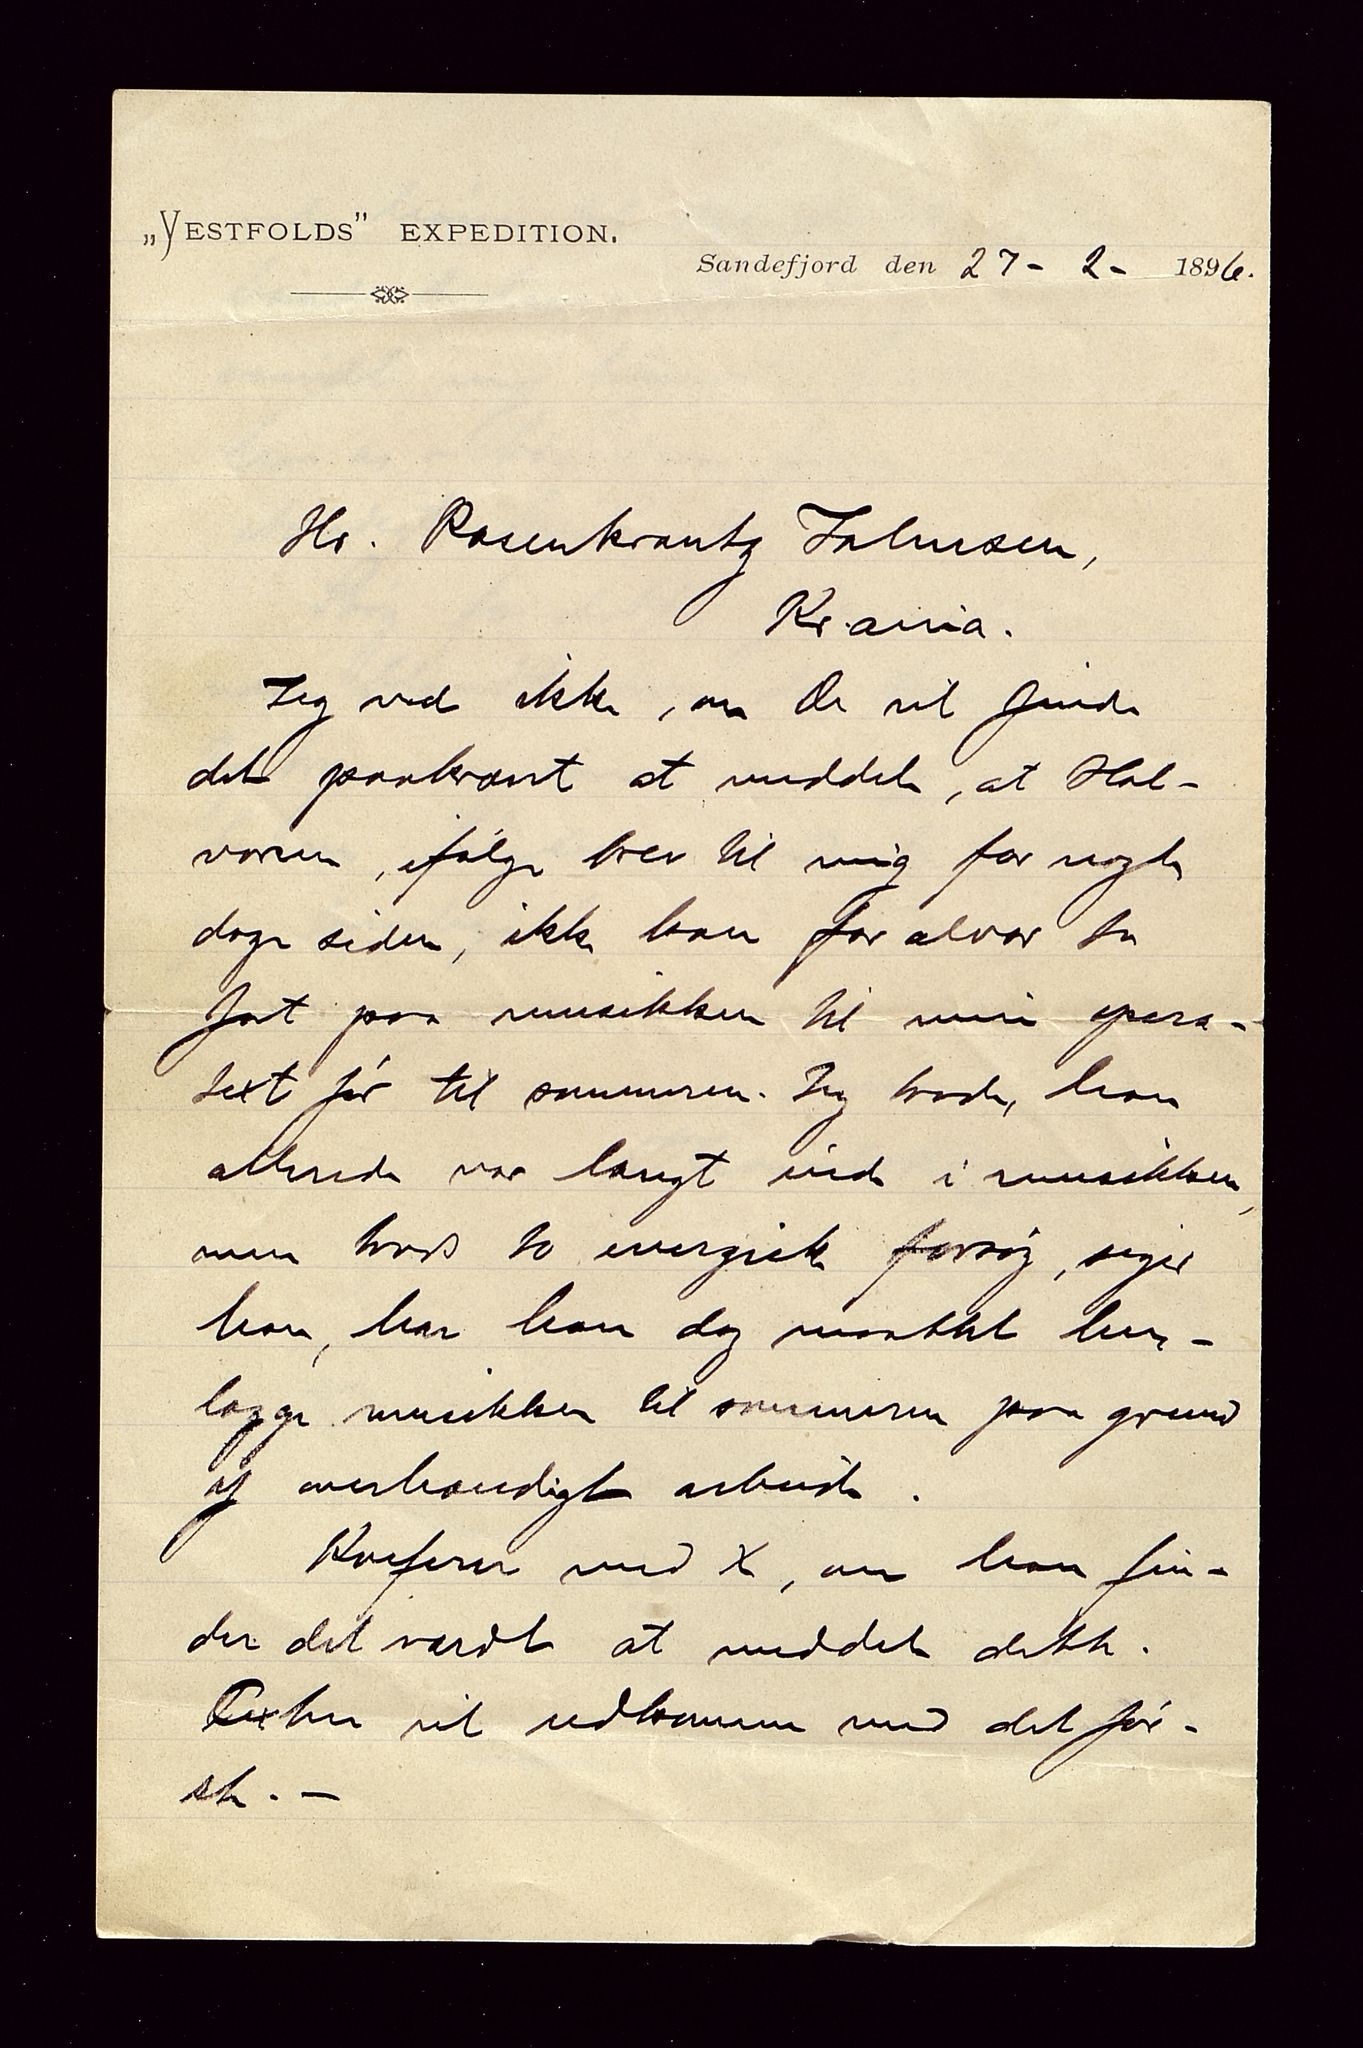 „VESTFOLDS” EXPEDITION.
Sandefjord den 27 - 2 - 1896.
Hr. Rosenkrantz Johnsen,
Kr.ania.
Jeg ved ikke, om De vil finde
det paakrævt at meddele, at Hal-
vorsen, ifølge brev til mig for nogle
dage siden, ikke kan for alvor ta
fat paa musikken til min opera-
text før til sommeren. Jeg trode, han
allerede var langt inde i musikken,
men trods to energiske forsøg, siger
han, har han dog maattet hen-
lægge musikken til sommeren paa grund
af overhændigt arbeide.
Konferer med X, om han fin-
der det værdt at meddele dette.
Texten vil udkomme med det før-
ste. —